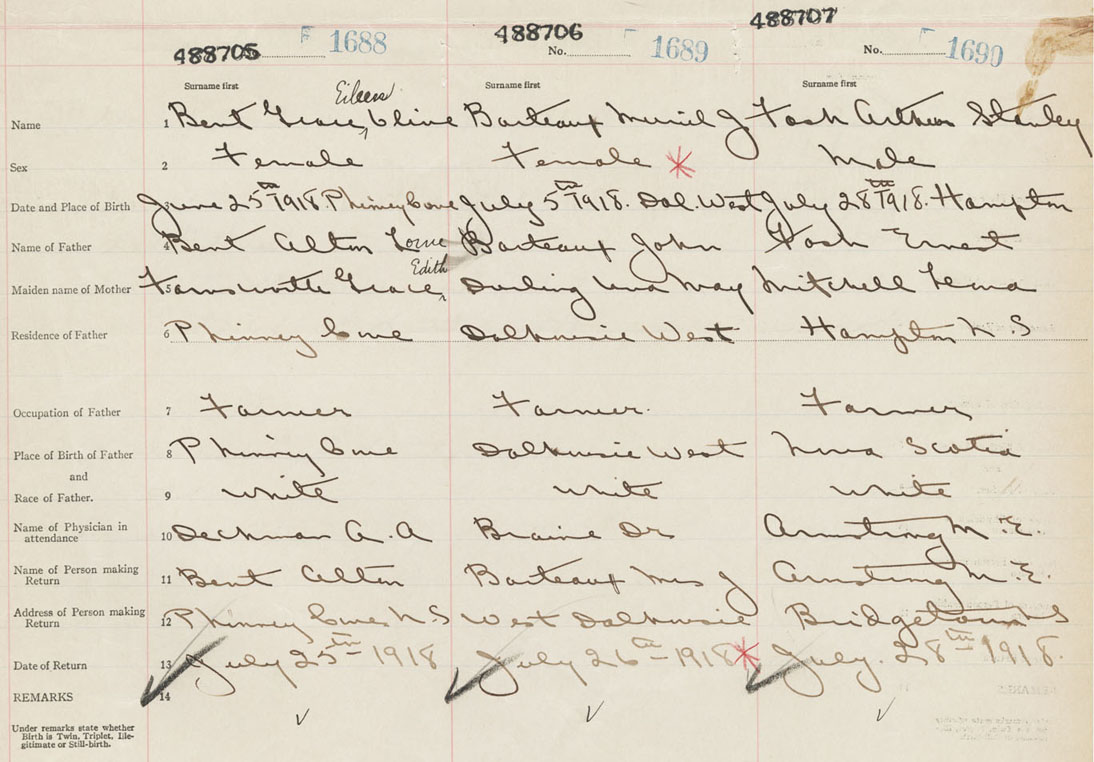 488705 F 1688 488706 No. F 1689 488707 No. F 1690
Surname first Surname first Surname first
Eileen
Name 1 Bent Grace, Olive Barteaux Muriel J Fash Arthur Stanley
Sex 2 Female Female * Male
Date and Place of Birth 3 June 25th 1918. Phinney Cove July 5th 1918. Dal. West July 28th 1918. Hampton
Name of Father 4 Bent Alton Lorne Barteaux John Fash Ernest
Edith
Maiden name of Mother 5 Farnsworth Grace, Durling Una May Mitchell Lena
Residence of Father 6 Phinney Cove Dalhousie West Hampton N.S
Occupation of Father 7 Farmer Farmer. Farmer
Place of Birth of Father 8 Phinney Cove Dalhousie West Nova Scotia
and
Race of Father. 9 White White White
Name of Physician in
attendance 10 Deckman A.A Braine Dr Armstrong M.E.
Name of Person making
Return 11 Bent Alton Barteaux Mrs J Armstrong M.E.
Address of Person making
Return 12 Phinney Cove N.S West Dalhousie Bridgetown N S
Date of Return 13 July 25th - 1918 July 26th - 1918 * July. 28th - 1918.
REMARKS 14
Under remarks state whether
Birth is Twin, Triplet, Ille-
gitimate or Still-birth.